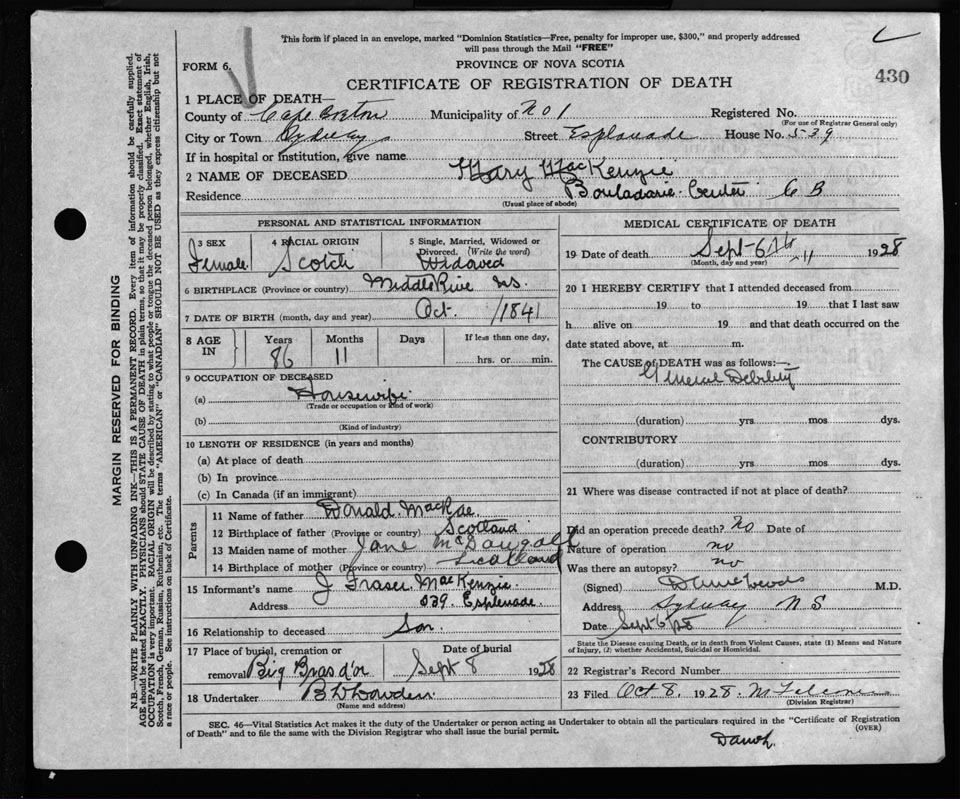 This form if placed in an envelope, marked "Dominion Statistics—Free, penalty for improper use, $300," and properly addressed
will pass through the Mail "FREE"
FORM 6.
PROVINCE OF NOVA SCOTIA
430
CERTIFICATE OF REGISTRATION OF DEATH
1 PLACE OF DEATH—
County of Cape Breton Municipality of No 1 Registered No.
(For use of Registrar General only)
City or Town Sydney Street Esplanade House No. 539
If in hospital or institution, give name
2 NAME OF DECEASED Mary MacKenzie
Residence Bouladarie Center C B
(Usual place of abode)
PERSONAL AND STATISTICAL INFORMATION
3 SEX 4 RACIAL ORIGIN 5 Single, Married, Widowed or Divorced. (Write the word)
Female Scotch Widowed
6 BIRTHPLACE (Province or country) Middle River N.S.
7 DATE OF BIRTH (month, day and year) Oct. /1841
8 AGE IN Years Months Days If less than one day,
86 11 hrs. or min.
9 OCCUPATION OF DECEASED
(a) Housewife
(Trade or occupation or kind of work)
(b)
(Kind of industry)
10 LENGTH OF RESIDENCE (in years and months)
(a) At place of death
(b) In province
(c) In Canada (if an immigrant)
Parents
11 Name of father Donald MacRae
12 Birthplace of father (Province or country) Scotland
13 Maiden name of mother Jane McDougall
14 Birthplace of mother (Province or country) Scotland
15 Informant's name J Fraser MacKenzie
Address 539 Esplanade
16 Relationship to deceased Son
17 Place of burial, cremation or removal Big Bras d'or Date of burial Sept 8 1928
18 Undertaker
(Name and address)
MEDICAL CERTIFICATE OF DEATH
19 Date of death Sept 6th 1928
(Month, day and year)
20 I HEREBY CERTIFY that I attended deceased from
19 to 19 that I last saw
h alive on 19 and that death occurred on the
date stated above, at m.
The CAUSE of DEATH was as follows:—
General Debility
(duration) yrs mos dys.
CONTRIBUTORY
(duration) yrs mos dys.
21 Where was disease contracted if not at place of death?
Did an operation precede death? No Date of
Nature of operation no
Was there an autopsy? no
(Signed) M.D.
Address Sydney N S
Date Sept 6/28
State the Disease causing Death, or in death from Violent Causes, state (1) Means and Nature
of Injury, (2) whether Accidental, Suicidal or Homicidal.
22 Registrar's Record Number
23 Filed Oct 8. 1928.
(Division Registrar)
SEC. 46—Vital Statistics Act makes it the duty of the Undertaker or person acting as Undertaker to obtain all the particulars required in the "Certificate of Registration
of Death" and to file the same with the Division Registrar who shall issue the burial permit.
(OVER)
MARGIN RESERVED FOR BINDING
N.B.—WRITE PLAINLY WITH UNFADING INK—THIS IS A PERMANENT RECORD. Every item of information should be carefully supplied.
AGE should be stated EXACTLY. PHYSICIANS should STATE CAUSE OF DEATH in plain terms, so that it may be properly classified. Exact statement of
OCCUPATION is very important. RACIAL ORIGIN will be described by stating to what people or tongue the deceased person belonged, whether English, Irish,
Scotch, French, German, Russian, Ruthenian, etc. The terms "AMERICAN" or "CANADIAN" SHOULD NOT BE USED as they express citizenship but not
a race or people. See instructions on back of Certificate.